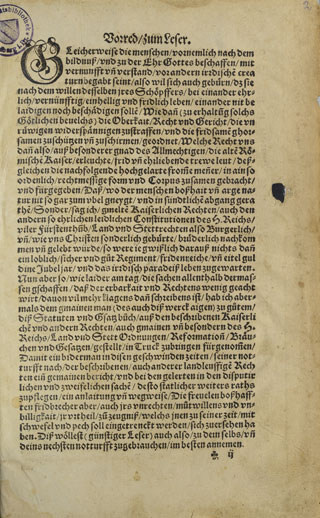 Vorred / zum Leser.
Gleicherweise die menschen / vornemlich nach dem
bildnuß / vnd zu der Ehr Gottes beschaffen / mit
vernunfft vñ verstand / vor andern irdischē crea
turn begabt seint / also wil sich auch gebürn / dz sie
nach dem willen desselben jres Schöpffers / bei einander ehr-
lich / vernünfftig / einhellig vnd fridlich leben / einander nit be
laidigen noch beschädigen sollē. Wie dañ (zu erhaltũg solchs
Götlichen beuelchs) die Oberkait / Recht vnd Gericht / die vn
rüwigen widerspännigen zustraffen / vnd die fridsamē ghor-
samen zuschützen vñ zuschirmen / geordnet. Welche Recht vns
dañ also / auß besonderer gnad des Allmechtigen / die alte Rö-
mische Kaiser / erleuchte / frid vñ ehrliebende trewe leut / deß-
gleichen die nachfolgende hochgelarte fromē menner / in ain so
ordenlich / rechtmessige form vnd Corpus zusamen gebracht /
vnd fürgegeben / Daß / wo der menschen boßhait vñ arge na-
tur nit so gar zum vbel gneygt / vnd in sündtlichē abgang gera
thē / Sonder / sag ich / gmeltē Kaiserlichen Rechten / auch den
andern so ehrlichen leidlichen Constitutionen des H. Reichs /
viler Fürstenthüb / Land vnd Stettrechten also Burgerlich /
vñ / wie vns Christen sonderlich gebürte / brüderlich nach kom
men vñ gelebt wurde / so were je gwißlich darauß nichts dañ
ein loblich / sicher vnd güt Regiment / fridenreiche / vñ eitel gul
dine Jubeljar / vnd das irdisch paradeiß leben zugewarten.
Nun aber so wie laider am tag / die sachen allenthalb dermas-
sen gschaffen / daß der erbarkait vnd Rechtens wenig geacht
wirt / dauon vil mehr klagens dañ schreibens ist / hab ich aber-
mals dem gmainen man (des auch diß werck aigen) zu gütem /
diß Statuten vnd Gsatz büch / auß den beschribenen Kaiserli
chē vnd andern Rechten / auch gmainen vñ besondern des H.
Reichs / Land vnd Stett Ordnungen / Reformationē / Breü-
chen vnd Gesatzen / gestelt / in Truck zubringen fürgenoñen /
Damit ein biderman in disen geschwinden zeiten / seiner not-
turfft nach / der beschribenen / auch anderer landleuffigē Rech
ten ein gmainen bericht / vnd bei den gelerten in den disputir
lichen vnd zweiflichen sachē / desto statlicher weiters raths
zupflegen / ein anlaitung vñ wegweise / Die freuelen boßhaff-
ten fridbrecher aber / auch jro vnrechten / mütwillens vnd vn-
billigkait / jr vrtheil / zü zeugnuß / welchs jnen zu seiner zeit / mit
schwefel vnd pech soll eingetrenckt werden / sich zuersehen ha
ben. Diß wöllest (günstiger Leser) auch also / zu dem selbs / vñ
deins nechsten notturfft zugebrauchen / im besten annemen.
ij